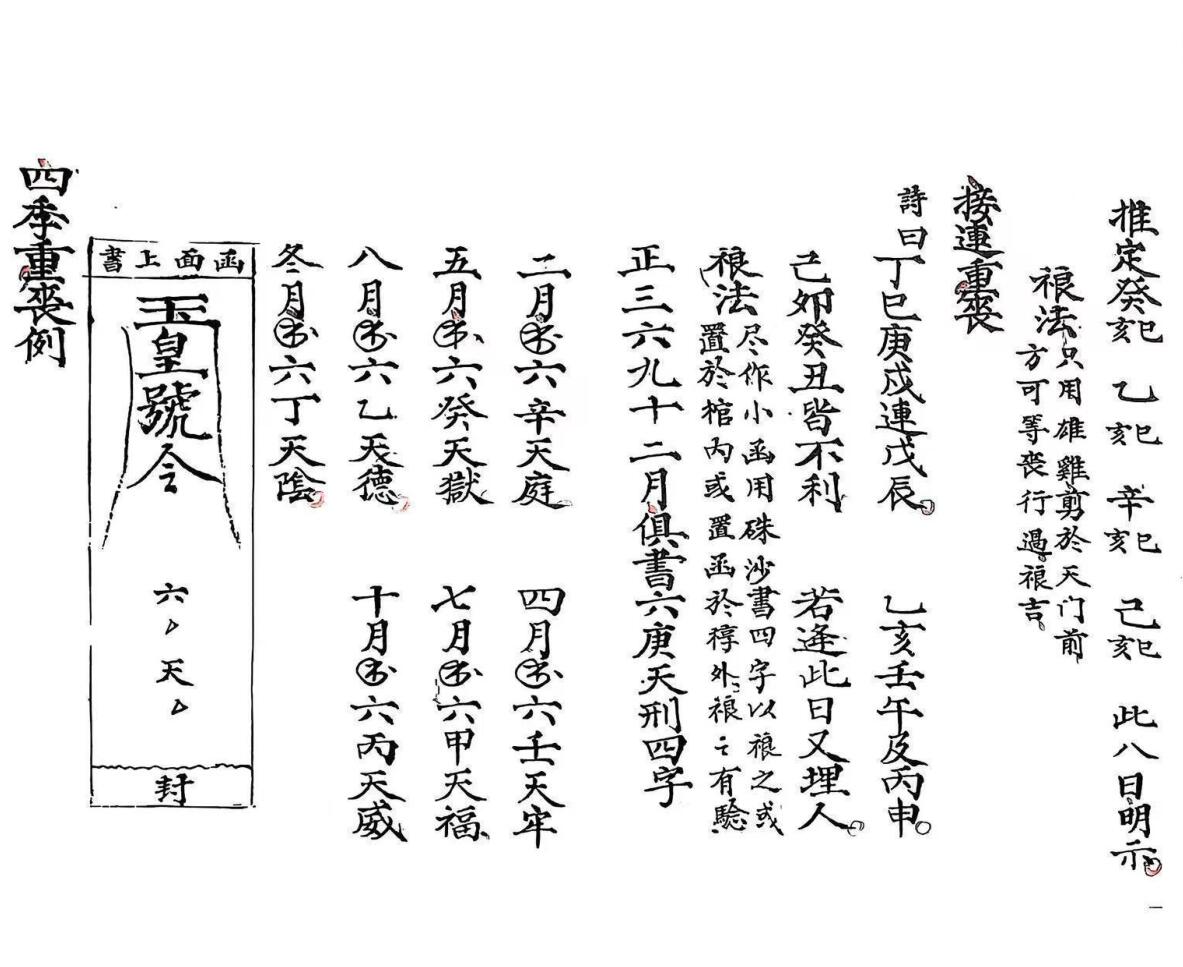 推定癸巳亥 乙巳亥 辛巳亥 己巳亥 此八日明示
禳法只用雄雞剪於天门前
方可等丧行過禳吉
接連重喪
詩曰丁巳庚戍連戊辰 乙亥壬午及丙申
己卯癸丑皆不利 若逢此日又埋人
禳法尽作小函用硃沙書四字以禳之或
置於棺内或置函於椁外禳之有驗
正三六九十二月俱書六庚天刑四字
二月書六辛天庭 四月書六壬天牢
五月書六癸天獄 七月書六甲天福
八月書六乙天德 十月書六丙天威
冬月書六丁天陰
函面上書
玉皇號令
六、天、
封
四季重喪例
一